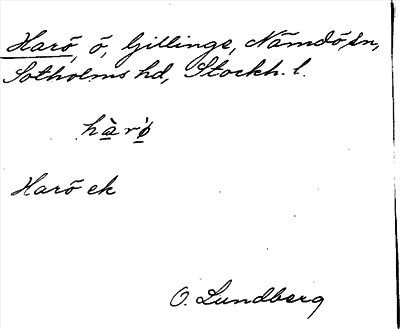 Harö, ö, Gillinge, Nämdö sn,
Sotholms hd, Stockh. l.
hàrö̀
Harö ek
O. Lundberg